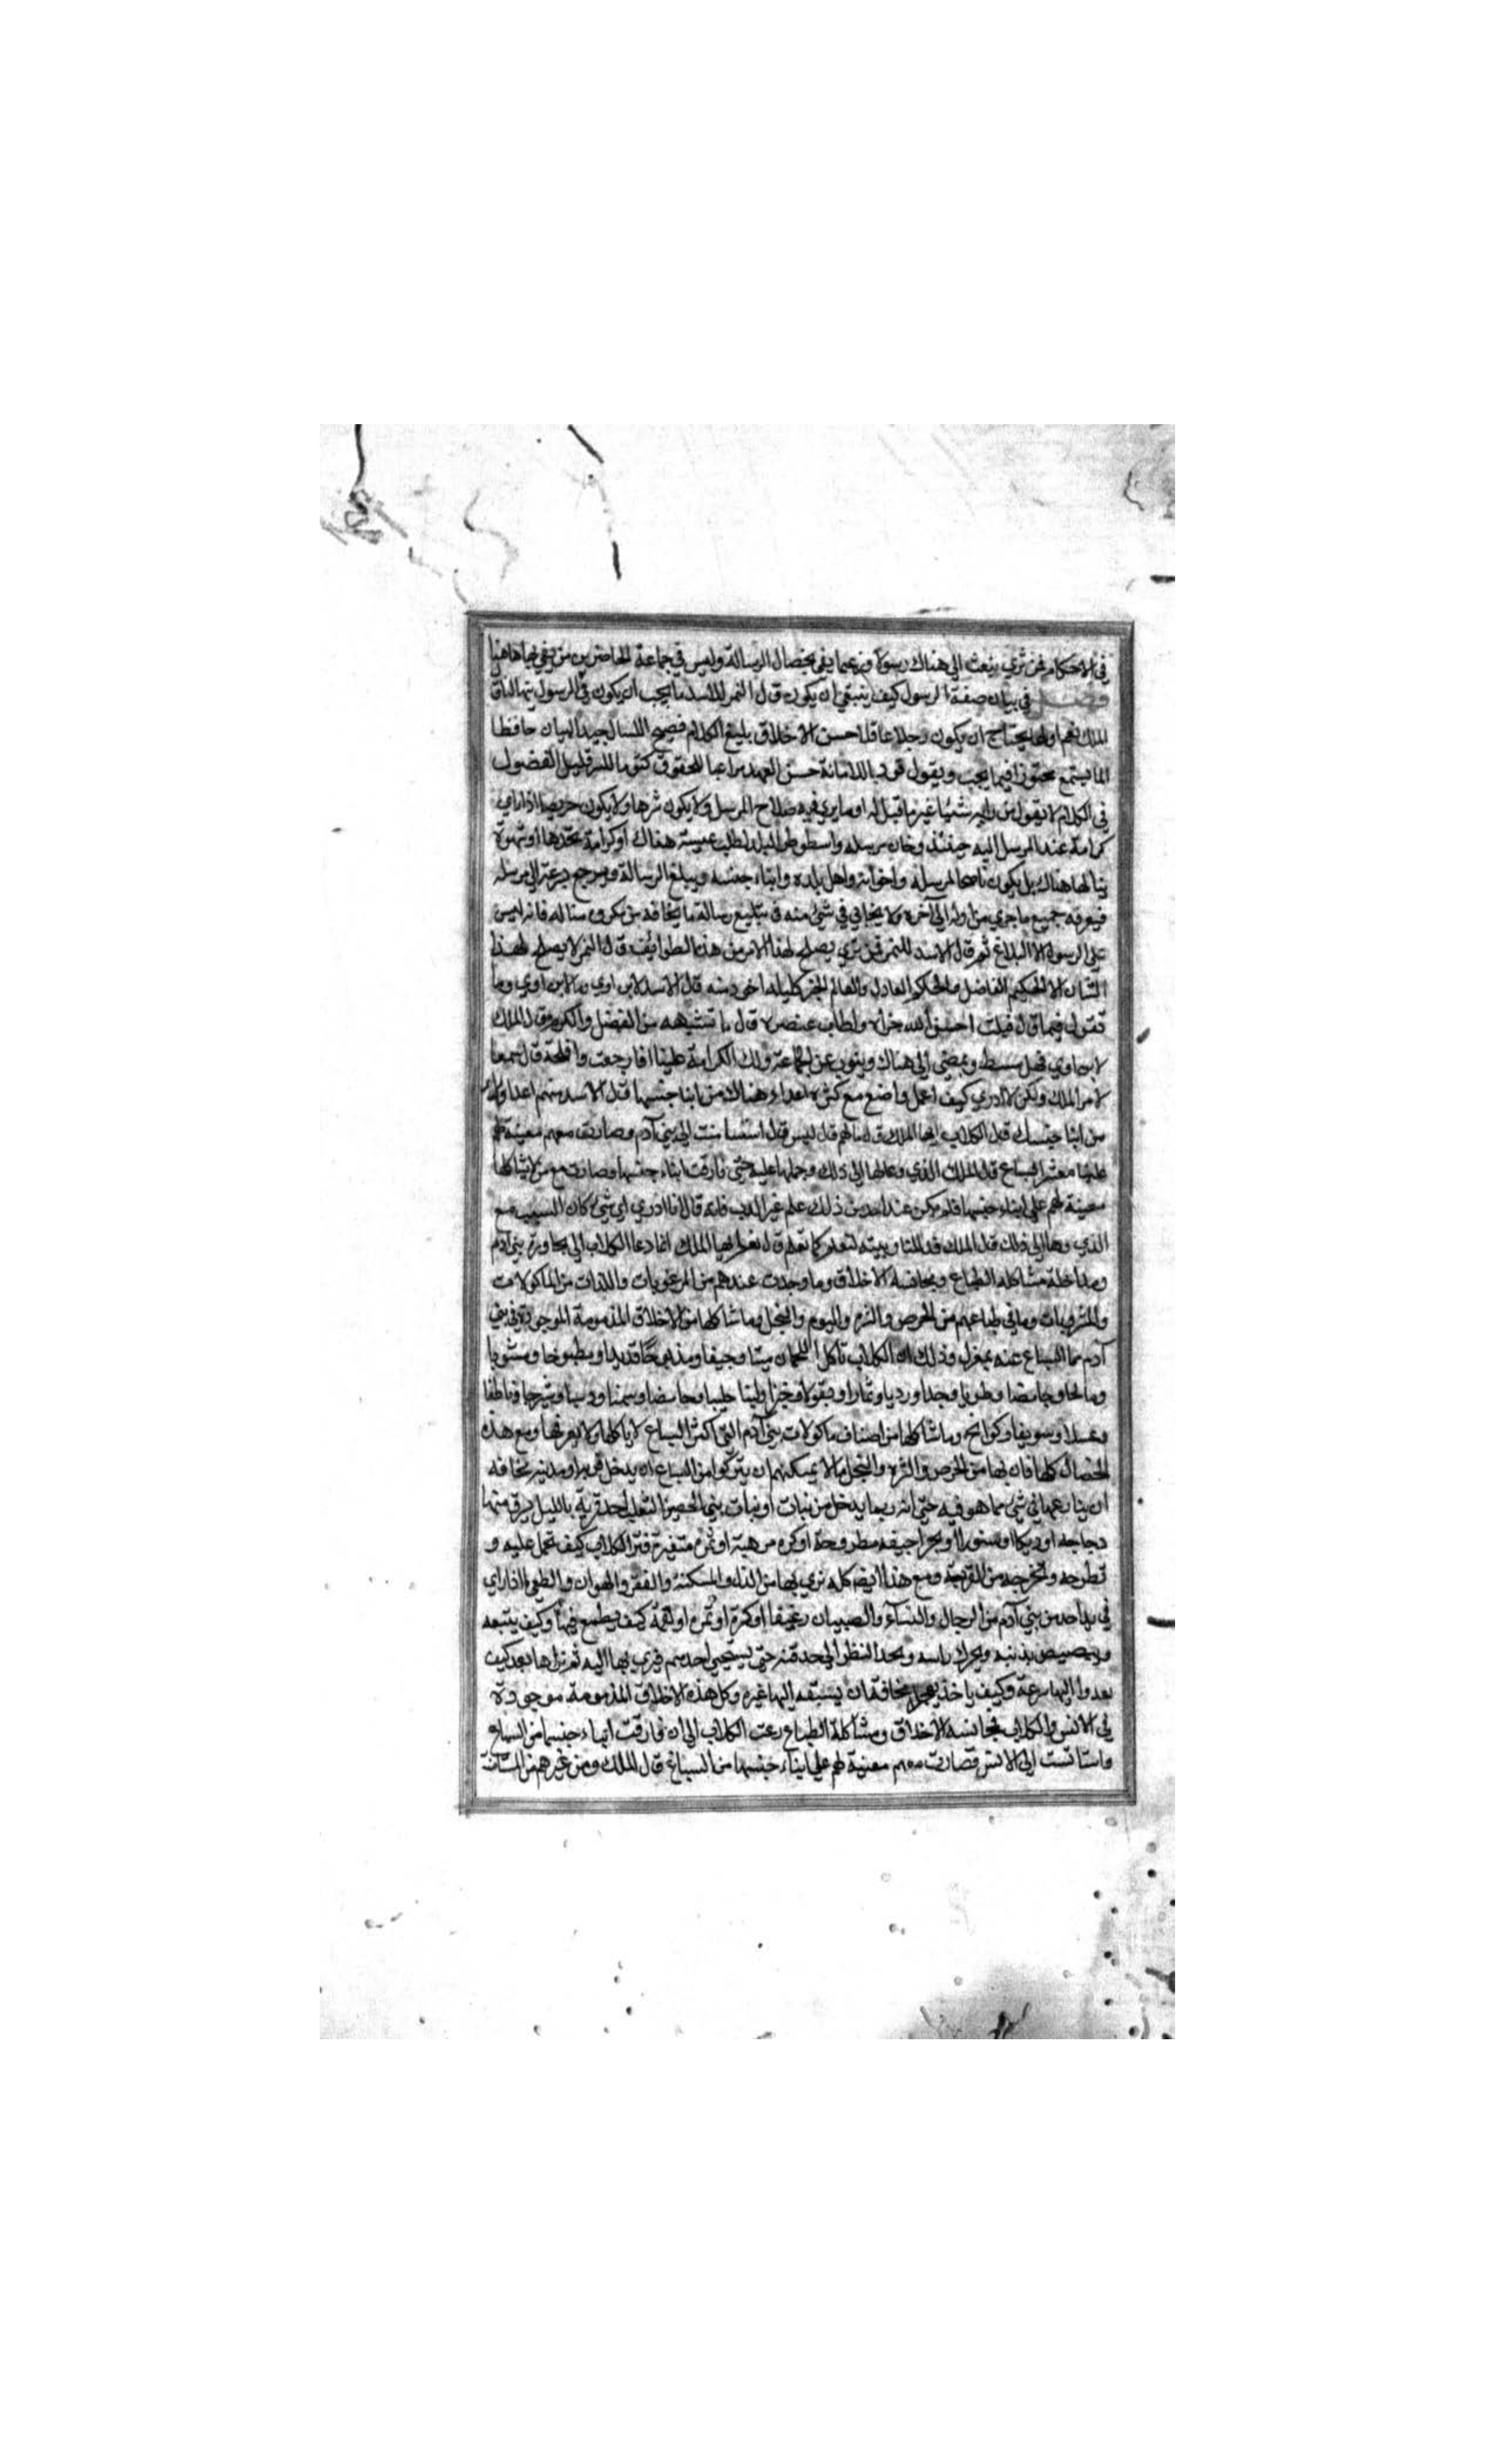 في الاحكام فمن تري يبعث الي هناك رسولا من عما يفي بخصال الرسالة وليس في جماعة الحاضرين من يفي بها هاهنا
فصل في بيان صفة الرسول كيف ينبغي ان يكون قال النمر للاسد ما يجب ان يكون في الرسول ايها
الملك نعم اولها يحتاج ان يكون رجلا عاقلا حسن الاخلاق بليغ الكلام فصيح اللسان جيد البيان حافظا
لما يستمع محترزا فيما يجيب ويقول للامانة حسن العهد مراعيا للحقوق كتوما للسر قليل الفضول
في الكلام لا يقول من رايه شيئا غير ما قيل له او ما يري فيه صلاح المرسل ولا يكون شرها ولا يكون حريصا اذا راي
كرامة عند المرسل اليه وخان مرسله البلد لطلب عيشة هناك او كرامة يجدها او شهوة
ينالها هناك بل يكون ناصحا لمرسله واخوانه واهل بلده وابناء جنسه ويبلغ الرسالة ويرجع بسرعة الي مرسله
فيعرفه جميع ما جري من اوله الي آخره ولا يحابي في شئ منه في تبليغ رسالة مخافة من مكروه يناله فانه ليس
علي الرسول الا البلاغ ثم قال الاسد للنمر فمن تري يصلح لهذا الامر من هذه الطوائف قال النمر لا يصلح لهذا
الشان الا الحكيم الفاضل والعالم كليله اخو دمنه قال الاسد لابن اوي ما
تقول فيما قال فيك احسن الله جزاه واطاب عنصره قال ما تشبهه من الفضل والكرم قال الملك
لابن اوي فهل تنشط وتمضي الي هناك وتنوب عن الجماعة ولك الكرامة علينا اذا رجعت وافلحت قال سمعا
لامر الملك ولكن لا ادري كيف اعمل واصنع مع كثرة اعداء هناك من ابنا جنسنا قال الاسد من هم اعداؤك
من ابنا جنسك قال الكلاب ايها الملك قال ما لهم قال ليس قد استأمنت الي بني آدم وصارت معهم معينة لهم
علينا معشر السباع قال الملك ما الذي دعاها الي ذلك وحملها عليه حتي فارقت ابناء جنسها وصارت مع من لا يشاكلها
معينة لهم علي ابناء جنسها فلم يكن عند احد من ذلك علم غير الدب فانه قال انا ادري اي شئ كان السبب
الذي دعاها الي ذلك قال الملك قل لنا وبينه لنعلم كما تعلم قال نعم ايها الملك انما دعا الكلاب الي مجاورة بني آدم
ومداخلة مشاكلة الطباع ومجانسة الاخلاق وما وجدت عندهم من المرغوبات واللذات من الماكولات
والمشروبات وما في طباعهم من الحرص والشره واللوم والبخل وما شاكلها من الاخلاق المذمومة الموجودة في بني
آدم مما السباع عنه بمعزل وذلك ان الكلاب تأكل اللحمان ميتا وجيفا ومذبوحا قديدا ومطبوخا ومشويا
ومالحا وجيدا ورديا وثمارا وبقولا وخبزا ولبنا حليبا وحامضا وسمنا ودبسا وشيرجا وناطفا
وعسلا وسويقا وكوامخ وما شاكلها من اصناف ماكولات بني آدم التي اكثر السباع لا ياكلها ولا يعرفها ومع هذه
الخصال كلها فان بها من الحرص والشره والبخل ما لا يمكنها ان يتركوا من السباع ان يدخل قرية او مدينة مخافة
ان ينازعها في شئ مما هو فيه حتي انه ربما يدخل من بنات اوي الثعلب احد قرية بالليل يسرق منها
دجاجة او ديكا او سنورا او يجر جيفة مطروحة او كسرة مرمية او ثمرة متغيرة فتري الكلاب كيف تحمل عليه و
تطرده وتخرجه من القرية ومع هذا ايضا كله نري بها من الذل والمسكنة والفقر والهوان والطمع اذا راي
في يد احد من بني آدم من الرجال والنسآء والصبيان رغيفا او كسرة او تمرة او لقمة كيف يطمع فيها وكيف يتبعه
ويبصبص بذنبه ويحرك راسه ويحد النظر الي حدقته حتي يستحيي احدهم فيرمي بها اليه ثم تراها بعد كيف
يعدوا اليها بسرعة وكيف ياخذ مخافة ان يسبقه اليها غيره وكل هذه الاخلاق المذمومة موجودة
في الانس والكلاب فمجانسة الاخلاق ومشاكلة الطباع دعت الكلاب الي ان فارقت ابناء جنسها من السباع
واستانست الي الانس وصارت معهم معينة لهم علي ابناء جنسها من السباع قال الملك ومن غيرهم من